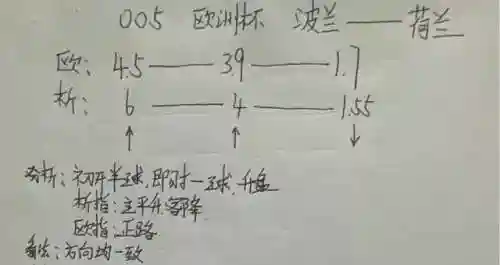 005 欧洲杯 波兰——荷兰
欧: 4.5——3.9——1.7
析: 6——4——1.55
↑ ↑ ↓
分析: 初开半球,即时一球,升盘
析指: 主平升,客降
欧指: 正路
备注: 方向均一致